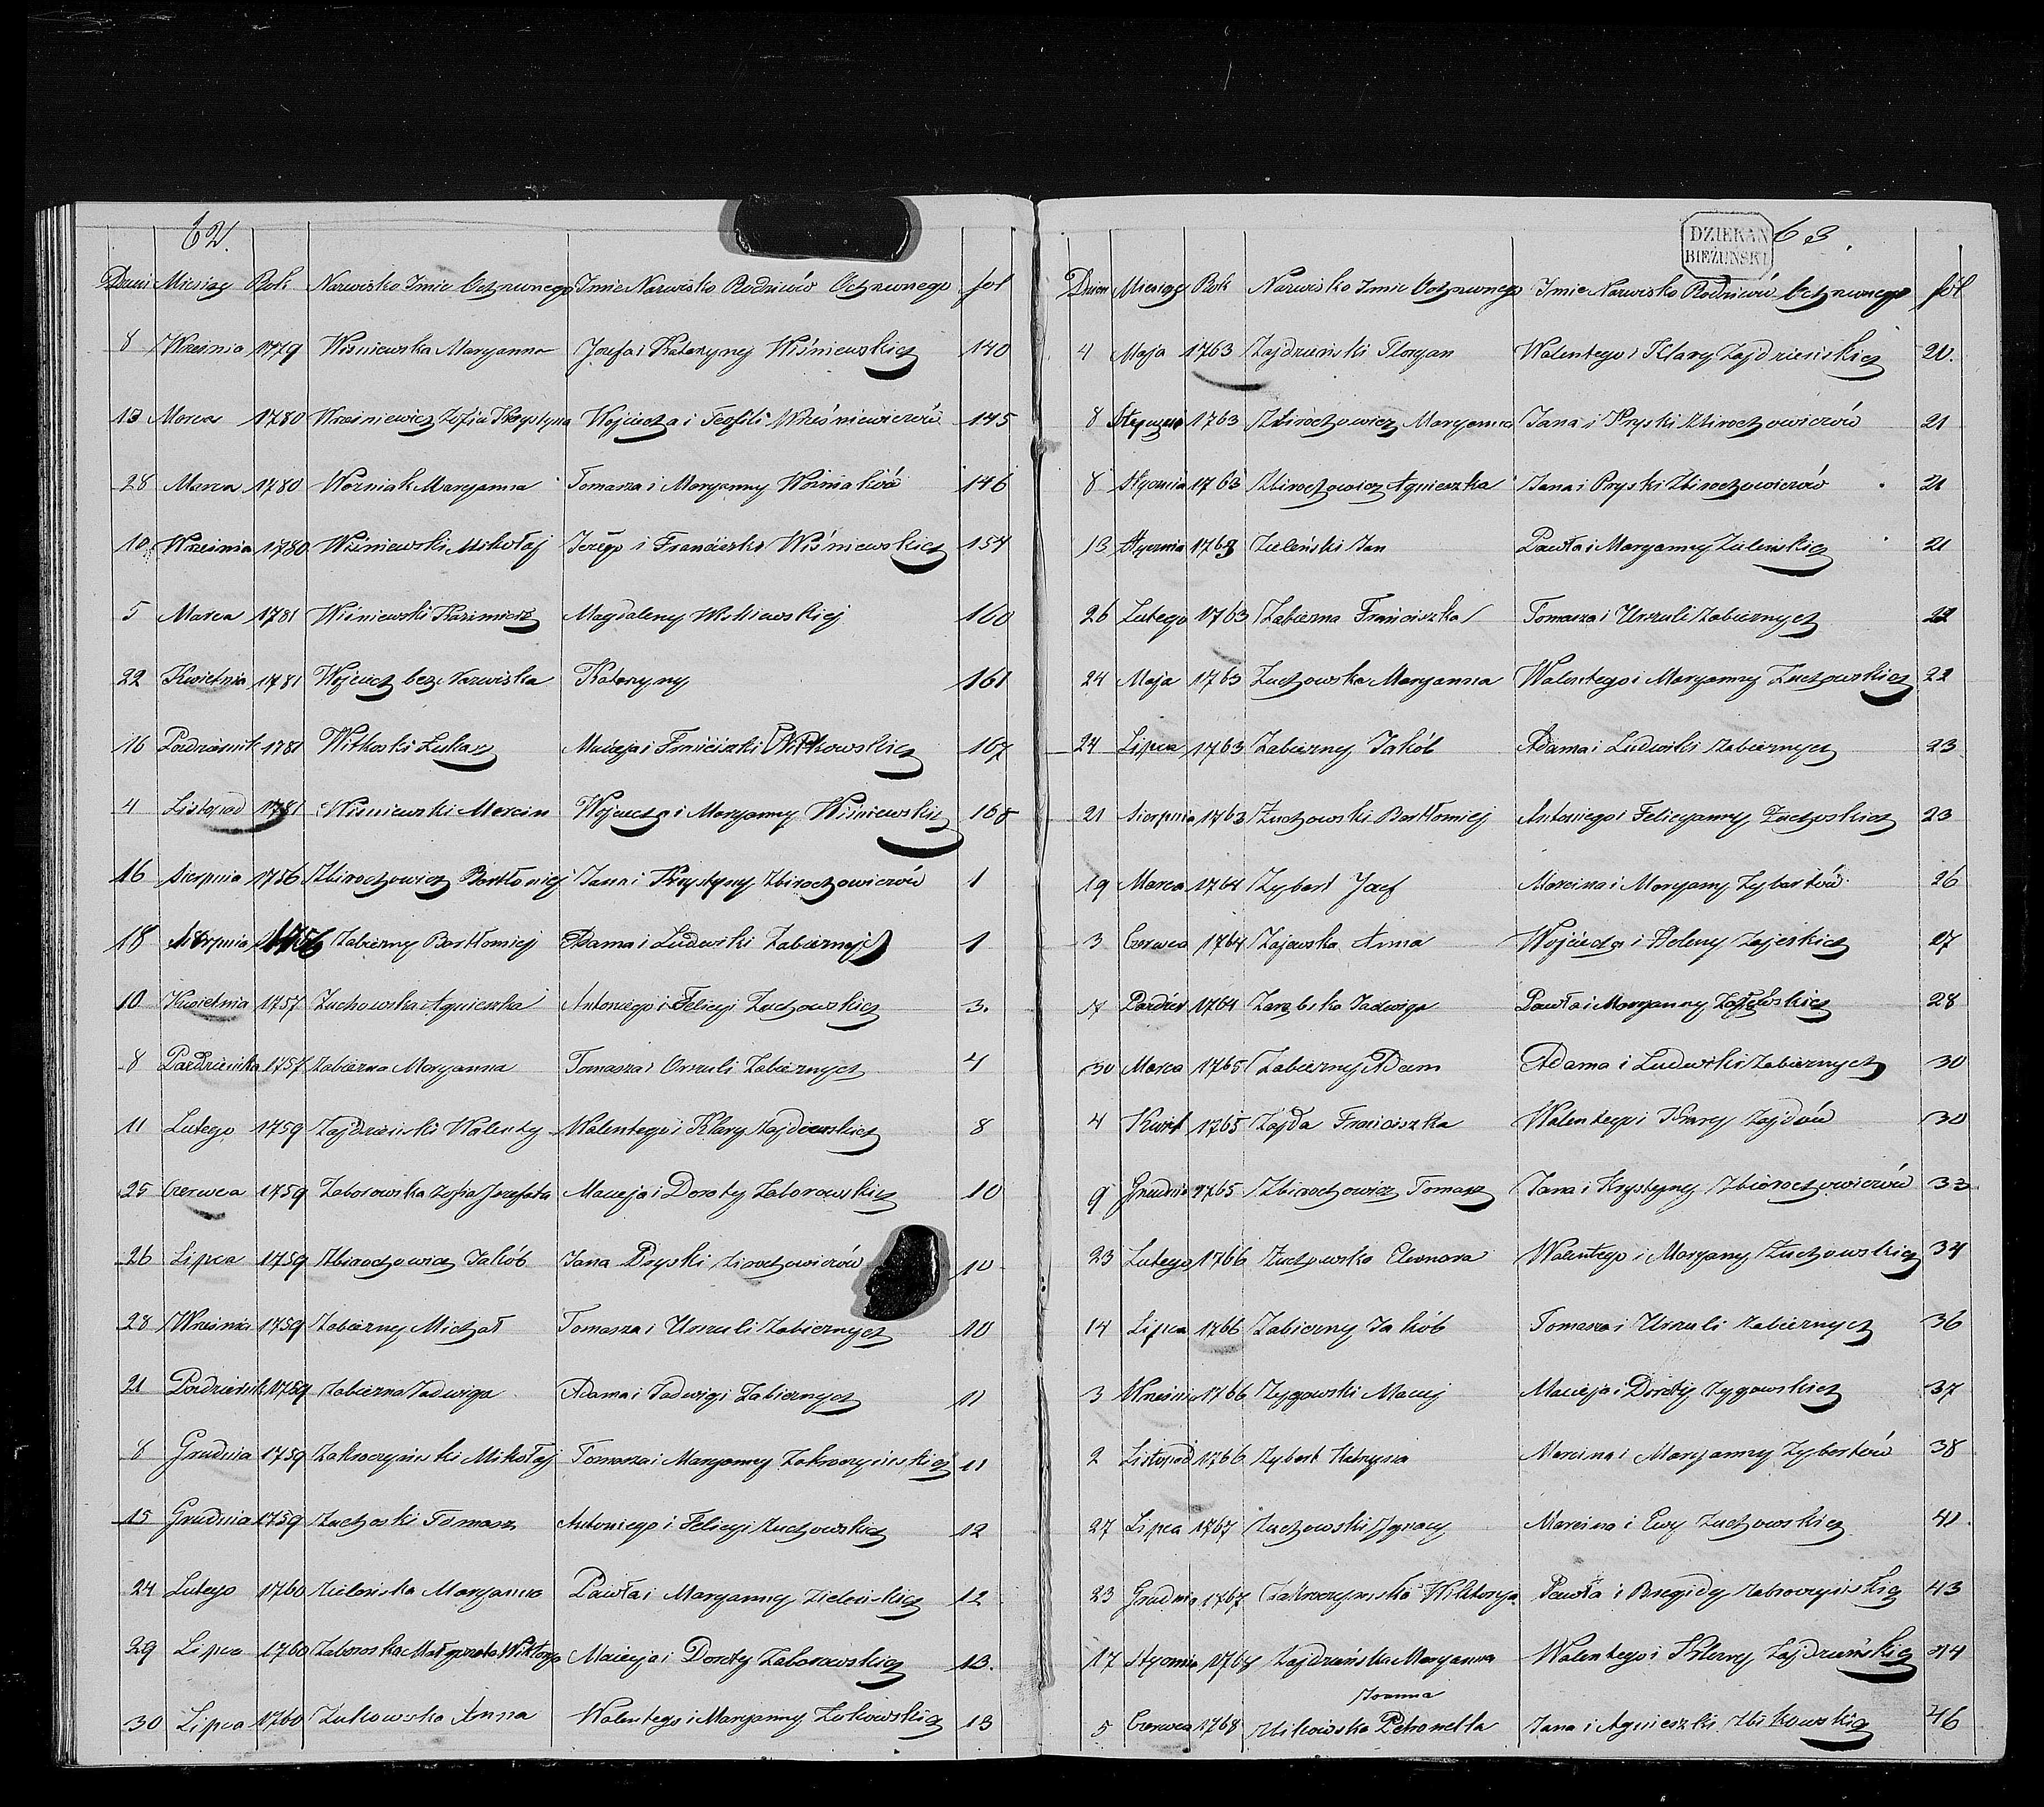 62.
Dzień Miesiąc Rok Nazwisko Imie Ochrzconego Imie Nazwisko Rodziców Ochrzconego fol
8 Września 1779 Wiśniewska Maryanna Jozefa i Katarzynej Wiśniewskich 140
13 Marca 1780 Wreśniewicz Zofia Krystyna Wojciecha i Teofili Wreśniewiczów 145
28 Marca 1780 Wozniak Maryanna Tomasza i Maryanny Woźniaków 146
10 Września 1780 Wiśniewski Mikołaj Jerzego i Franciszki Wiśniewskich 154
5 Marca 1781 Wiśniewski Kazimierz Magdaleny 160
22 Kwietnia 1781 Wojciech bez Nazwiska Katarzyny 161
16 Pazdziernik 1781 Witkoski Łukasz Macieja i Franciszki Witkowskich 167
4 Listopad 1781 Wisniewski Marcin Wojciecha i Maryanny Wiśniewskich 168
16 Sierpnia 1756 Zbirochowicz Bartłomiej Jana i Krystyny Zbirochowiczów 1
18 Sierpnia 1756 Zabierny Bartłomiej Adama i Ludwiki Zabiernych 1
10 Kwietnia 1757 Zuchowska Agnieszka Antoniego i Felicyi Zuchowskich 3.
8 Pazdziernika 1757 Zabierna Maryanna Tomasza i Urszuli Zabiernych 4
11 Lutego 1759 Zajdzieński Walenty Walentego i Klary 8
25 Czerwca 1759 Zaborowska Zofia Jozefata Macieja i Doroty Zaborowskich 10
26 Lipca 1759 Zbirochowicz Jakób Jana Pryski Zirochowiczów 10
28 Wrześnie 1759 Zabierny Michał Tomasza i Urszuli Zabiernych 10
21 Pazdziernik 1759 Zabierna Jadwiga Adama i Jadwigi Zabiernych 11
8 Grudnia 1759 Zakroczyński Mikołaj Tomasza i Maryanny Zakroczyńskich 11
15 Grudnia 1759 Zuchoski Tomasz Antoniego i Felicyi Zuchowskich 12
24 Lutego 1760 Zielońska Maryanna Pawła i Maryanny Zieleńskich 12
29 Lipca 1760 Zaboroska Małgorzata Wiktorya Macieja i Doroty Zaborowskich 13.
30 Lipca 1760 Zukowska Anna Walentego i Maryanny Zukowskich 13
DZIEKAN
BIEŻUŃSKI
63.
Dzien Miesiąc Rok Nazwisko Imie Ochrzconego Imie Nazwisko Rodziców Ochrzconego fol
4 Maja 1763 Zajdzieński Floryan Walentego i Klary Zajdzieńskich 20.
8 Stycznia 1763 Zbirochowicz Maryanna Jana i Pryski Zbirochowiczów 21
8 Stycznia 1763 Zbirochowicz Agnieszka Jana i Pryski Zbirochowiczów 21
13 Stycznia 1763 Zieleński Jan Pawła i Maryanny Zieleńskich 21
26 Lutego 1763 Zabierna Franciszka Tomasza i Urszuli Zabiernych 22
24 Maja 1763 Zuchowska Maryanna Walentego i Maryanny Zuchowskich 22
24 Lipca 1763 Zabierny Jakób Adama i Ludwiki Zabiernych 23
21 Sierpnia 1763 Zuchowski Bartłomiej Antoniego i Felicyanny Zuchoskich 23
19 Marca 1764 Zybert Jozef Marcina i Maryanny Zybertów 26
3 Czerwca 1764 Zajewska Anna Wojciecha i Heleny Zajeskich 27
Pazdzier 1764 Jadwiga Pawła i Maryanny 28
30 Marca 1765 Zabierny Adam Adama i Ludwiki Zabiernych 30
4 Kwiet 1765 Zajda Franciszka Walentego i Klary Zajdów 30
9 Grudnia 1765 Zbirochowicz Tomasz Jana i Krystyny Zbirochowiczów 33
23 Lutego 1766 Zuchowska Eleonora Walentego i Maryany Zuchowskich 34
14 Lipca 1766 Zabierny Jakób Tomasza i Urszuli Zabiernych 36
3 Września 1766 Zygowski Maciej Macieja i Doroty Zygowskich 37
2 Listopad 1766 Zybert Katrzyna Marcina i Maryanny Zybertów 38
27 Lipca 1767 Zuchowski Ignacy Marcina i Ewy Zuchowskich 41.
23 Grudnia 1767 Zakroczymska Wiktorya Pawła i Brygidy Zakroczyńskich 43
17 Stycznia 1768 Zajdzieńska Maryanna Walentego i Klary Zajdzieńskich 44
Joanna
5 Czerwca 1768 Zbikowska Petronella Jana i Agnieszki Zbikowskich 46